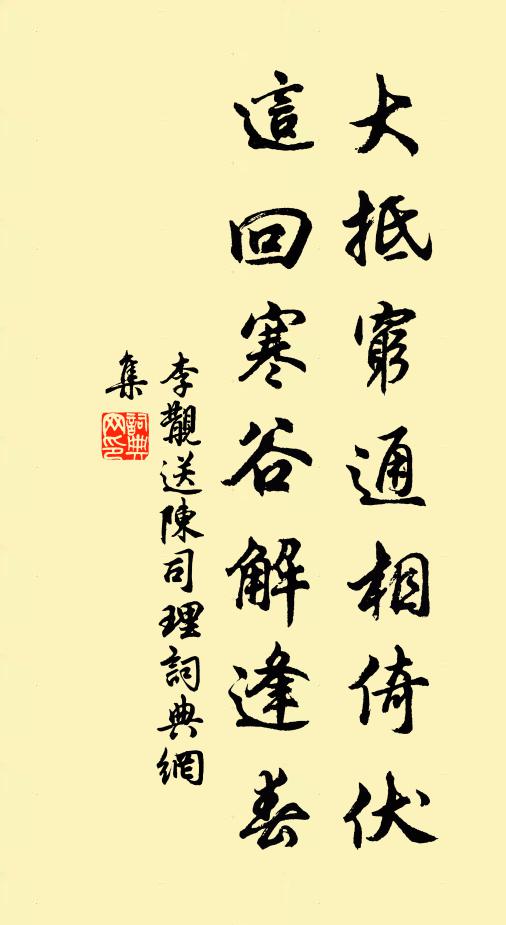 大抵窮通相倚伏
這回寒谷解逢春
李覯送陳司理詞典網
集
詞典
网印